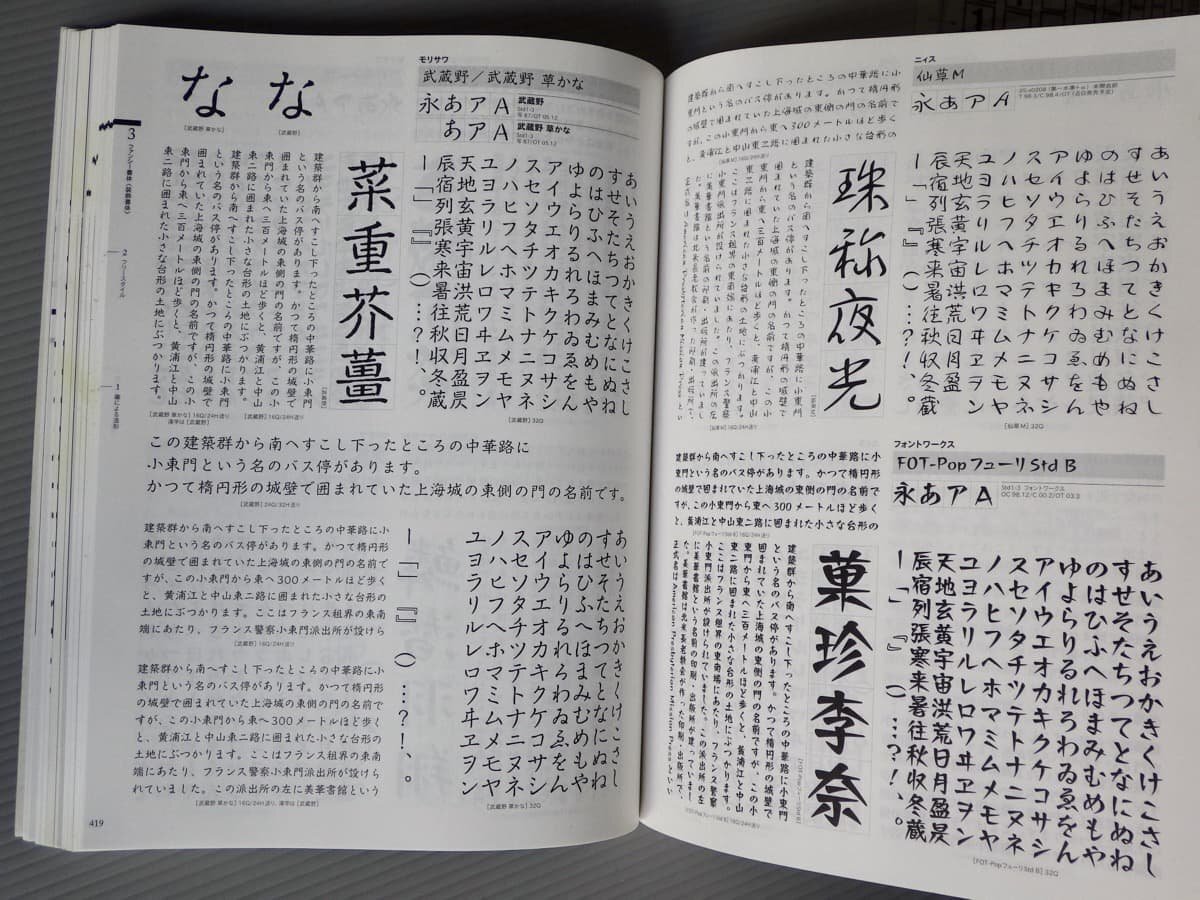 3
ファンシー書体（装飾書体）
2 フリースタイル
1 筆による造形
な な
[武蔵野 草かな] [武蔵野]
モリサワ
武蔵野／武蔵野 草かな
永あアA
武蔵野
Std1-3
写87/OT05.12
あアA
武蔵野 草かな
Std1-3
写87/OT05.12
あいうえおかきくけこさし
すせそたちつてとなにぬね
のはひふへほまみむめもや
ゆよらりるれろわゐゑをん
アイウエオカキクケコサシ
スセソタチツテトナニヌネ
ノハヒフヘホマミムメモヤ
ユヨラリルレロワヰヱヲン
天地玄黄宇宙洪荒日月盈昃
辰宿列張寒来暑往秋収冬蔵
ー「」『』（）…？！、。
[武蔵野] 32Q
菜重芥薑
[武蔵野]
建築群から南へすこし下ったところの中華路に小東門
という名のバス停があります。かつて楕円形の城壁で
囲まれていた上海城の東側の門の名前ですが、この小
東門から東へ三百メートルほど歩くと、黄浦江と中山
東二路に囲まれた小さな台形の土地にぶつかります。
[武蔵野] 16Q/24H送り
建築群から南へすこし下ったところの中華路に小東門
という名のバス停があります。かつて楕円形の城壁で
囲まれていた上海城の東側の門の名前ですが、この小
東門から東へ三百メートルほど歩くと、黄浦江と中山
東二路に囲まれた小さな台形の土地にぶつかります。
[武蔵野 草かな] 16Q/24H送り
漢字は[武蔵野]
この建築群から南へすこし下ったところの中華路に
小東門という名のバス停があります。
かつて楕円形の城壁で囲まれていた上海城の東側の門の名前です。
[武蔵野] 24Q/32H送り
建築群から南へすこし下ったところの中華路に小
東門という名のバス停があります。かつて楕円形
の城壁で囲まれていた上海城の東側の門の名前で
すが、この小東門から東へ300メートルほど歩く
と、黄浦江と中山東二路に囲まれた小さな台形の
土地にぶつかります。ここはフランス租界の東南
端にあたり、フランス警察小東門派出所が設けら
[武蔵野] 16Q/24H送り
建築群から南へすこし下ったところの中華路に小
東門という名のバス停があります。かつて楕円形
の城壁で囲まれていた上海城の東側の門の名前で
すが、この小東門から東へ300メートルほど歩く
と、黄浦江と中山東二路に囲まれた小さな台形の
土地にぶつかります。ここはフランス租界の東南
端にあたり、フランス警察小東門派出所が設けら
れていました。この派出所の左に美華書館という
[武蔵野 草かな] 16Q/24H送り、漢字は[武蔵野]
あいうえおかきくけこさし
すせそたちつてとなにぬね
のはひふへほまみむめもや
ゆよらりるれろわゐゑをん
アイウエオカキクケコサシ
スセソタチツテトナニヌネ
ノハヒフヘホマミムメモヤ
ユヨラリルレロワヰヱヲン
ー「」『』（）…？！、。
[武蔵野 草かな] 32Q
419
ニィス
仙草M
永あアA
建築群から南へすこし下ったところの中華路に小
東門という名のバス停があります。かつて楕円形
の城壁で囲まれていた上海城の東側の門の名前で
すが、この小東門から東へ300メートルほど歩く
と、黄浦江と中山東二路に囲まれた小さな台形の
[仙草M] 16Q/24H送り
あいうえおかきくけこさし
すせそたちつてとなにぬね
のはひふへほまみむめもや
ゆよらりるれろわゐゑをん
アイウエオカキクケコサシ
スセソタチツテトナニヌネ
ノハヒフヘホマミムメモヤ
ユヨラリルレロワヰヱヲン
天地玄黄宇宙洪荒日月盈昃
辰宿列張寒来暑往秋収冬蔵
ー「」『』（）…？！、。
[仙草M] 32Q
珠称夜光
[仙草M]
建築群から南へすこし下ったところの中華路に小東門
という名のバス停があります。かつて楕円形の城壁で
囲まれていた上海城の東側の門の名前ですが、この小
東門から東へ三百メートルほど歩くと、黄浦江と中山
東二路に囲まれた小さな台形の土地にぶつかります。
ここはフランス租界の東南端にあたり、フランス警察
小東門派出所が設けられていました。この派出所の左
に美華書館という名前の印刷・出版所が建っていまし
[仙草M] 16Q/24H送り
フォントワークス
FOT-PopフューリStd B
永あアA
Std1-3 フォントワークス
OC98.12/C00.2/OT03.3
建築群から南へすこし下ったところの中華路に小
東門という名のバス停があります。かつて楕円形
の城壁で囲まれていた上海城の東側の門の名前で
すが、この小東門から東へ300メートルほど歩く
と、黄浦江と中山東二路に囲まれた小さな台形の
[FOT-PopフューリStd B] 16Q/24H送り
あいうえおかきくけこさし
すせそたちつてとなにぬね
のはひふへほまみむめもや
ゆよらりるれろわゐゑをん
アイウエオカキクケコサシ
スセソタチツテトナニヌネ
ノハヒフヘホマミムメモヤ
ユヨラリルレロワヰヱヲン
天地玄黄宇宙洪荒日月盈昃
辰宿列張寒来暑往秋収冬蔵
ー「」『』（）…？！、。
[FOT-PopフューリStd B] 32Q
菓珍李奈
[FOT-PopフューリStd B]
建築群から南へすこし下ったところの中華路に小東門
という名のバス停があります。かつて楕円形の城壁で
囲まれていた上海城の東側の門の名前ですが、この小
東門から東へ三百メートルほど歩くと、黄浦江と中山
東二路に囲まれた小さな台形の土地にぶつかります。
ここはフランス租界の東南端にあたり、フランス警察
小東門派出所が設けられていました。この派出所の左
に美華書館という名前の印刷・出版所が建っていまし
た。美華書館は北米長老教会が作った印刷・出版所で、
正式名はAmerican Presbyterian Mission Pressとい
[FOT-PopフューリStd B] 16Q/24H送り